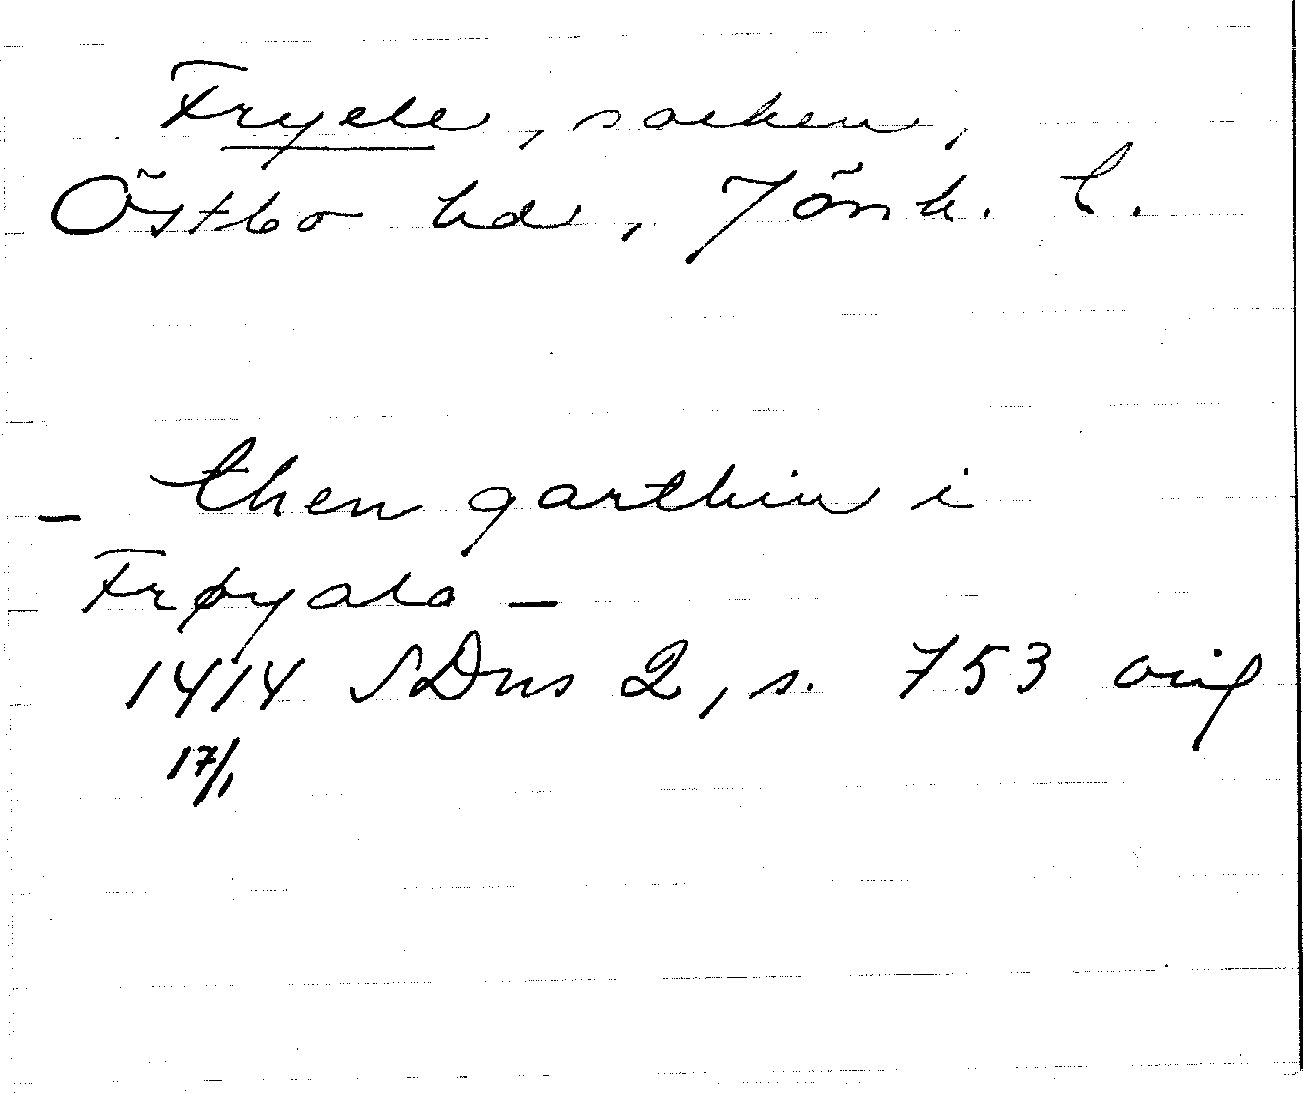 Fryele, socken,
Östbo hd, Jönk. l.
- then garthin i
Frøyala -
1414 SDns 2, s. 753 orig
17/1